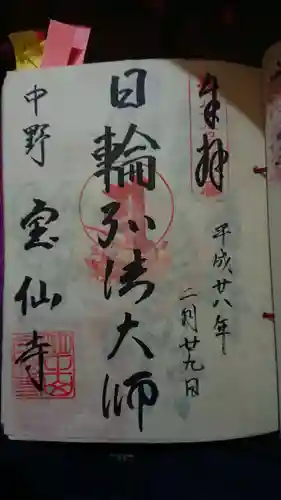 奉拝
平成廿八年
二月廿九日
日輪弘法大師
中野
宝仙寺